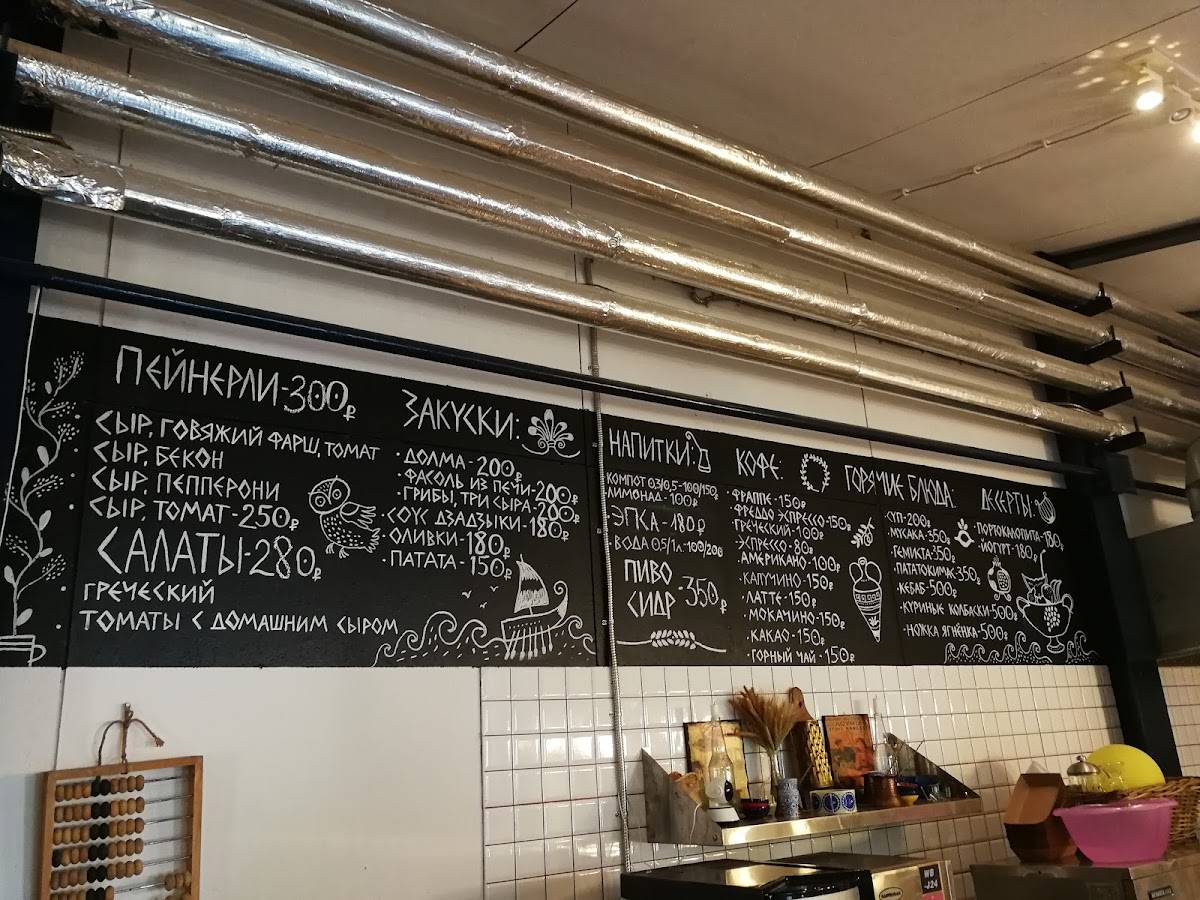 ПЕЙНЕРЛИ-300₽
СЫР, ГОВЯЖИЙ ФАРШ, ТОМАТ
СЫР, БЕКОН
СЫР, ПЕППЕРОНИ
СЫР, ТОМАТ-250₽
САЛАТЫ-280₽
ГРЕЧЕСКИЙ
ТОМАТЫ С ДОМАШНИМ СЫРОМ
ЗАКУСКИ:
·ДОЛМА-200₽
ФАСОЛЬ ИЗ ПЕЧИ-200₽
·ГРИБЫ, ТРИ СЫРА-200₽
·СОУС ДЗАДЗЫКИ-180₽
·ОЛИВКИ-180₽
·ПАТАТА-150₽
НАПИТКИ:
КОМПОТ 0.3/0.5-100/150₽
ЛИМОНАД-100₽
ЭПСА-180₽
ВОДА 0.5/1л-100/200
ПИВО
СИДР-350₽
КОФЕ:
·ФРАППЕ-150₽
·ФРЕДДО ЭСПРЕССО-150₽
ГРЕЧЕСКИЙ-100₽
·ЭСПРЕССО-80₽
·АМЕРИКАНО-100₽
·КАПУЧИНО-150₽
·ЛАТТЕ-150₽
·МОКАЧИНО-150₽
·КАКАО-150₽
·ГОРНЫЙ ЧАЙ-150₽
ГОРЯЧИЕ БЛЮДА:
·СУП-200₽
·МУСАКА-350₽
·ГЕМИСТА-350₽
·ПАТАТОКИМАС-350₽
·КЕБАБ-500₽
·КУРИНЫЕ КОЛБАСКИ-500₽
·НОЖКА ЯГНЁНКА-500₽
ДЕСЕРТЫ:
·ПОРТОКАЛОПИТА-180₽
·ЙОГУРТ-180₽
WB
-J24